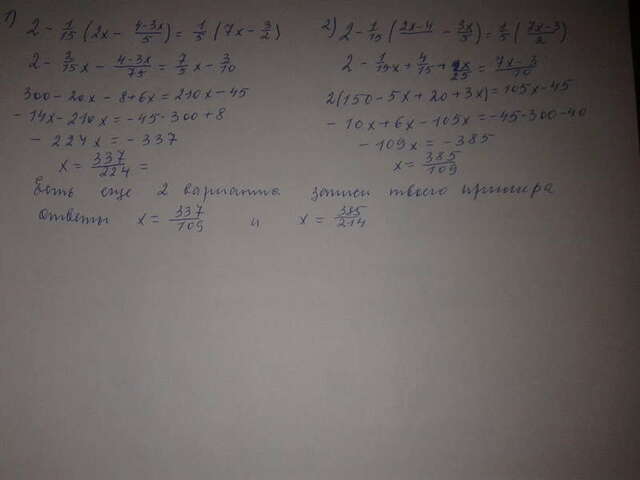 1) 2 - 1/15 (2x - (4-3x)/5) = 1/5 (7x - 3/2)
2 - 2/15 x - (4-3x)/75 = 7/5 x - 3/10
300 - 20x - 8 + 6x = 210x - 45
- 14x - 210x = -45 - 300 + 8
- 224x = - 337
x = 337/224 =
2) 2 - 1/15 ((2x-4)/ - 3x/5) = 1/5 ((7x-3)/2)
2 - 1/15 x + 4/15 + x/25 = (7x-3)/10
2(150 - 5x + 20 + 3x) = 105x - 45
- 10x + 6x - 105x = -45-300-40
- 109x = - 385
x = 385/109
Есть еще 2 варианта записи твоего примера
ответы x = 337/109 и x = 385/214